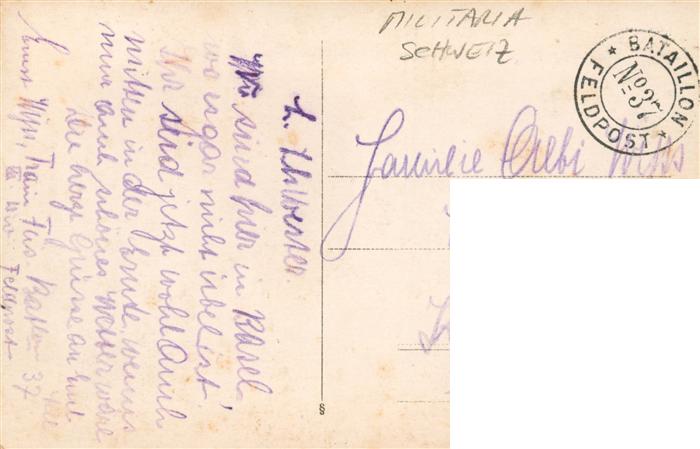 MILITARIA
SCHWEIZ
BATAILLON
No 37
FELDPOST
L. Schwester.
Wir sind hier in Basel
was gar nicht übel ist.
Ihr seid jetzt wohl auch
mitten in der Ernte, wenn
nur auch schönes Wetter wäre
Die herzl Grüsse an Euch
Ernst Wyss, Train Füs Batt. 37
Feldpost
Familie Aebi Wyss
§